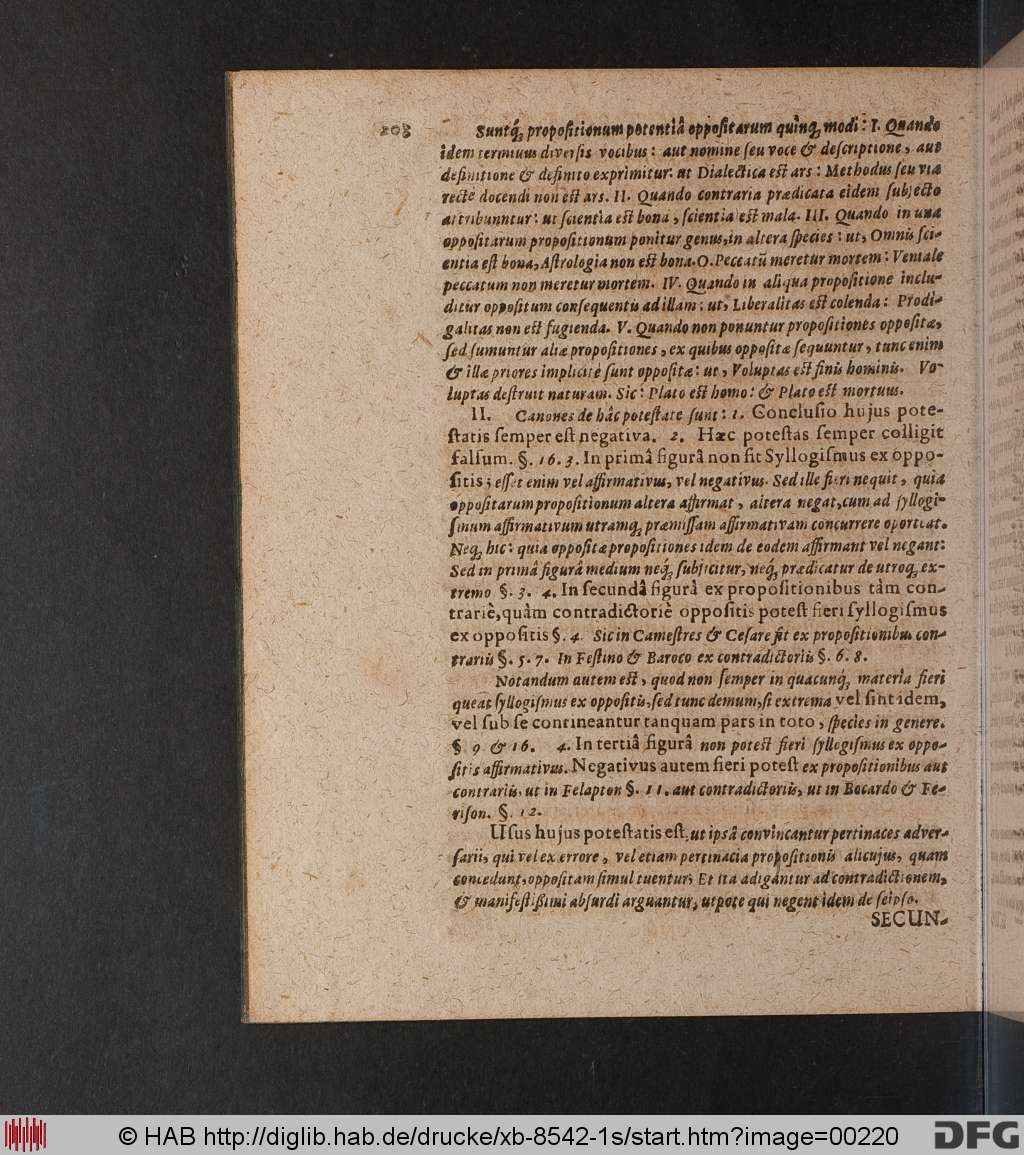 Suntq́; propoſitionum potentiâ oppoſitarum quinq; modi: I. Quando
idem terminus diverſis vocibus: aut nomine ſeu voce & deſcriptione, aut
definitione & definito exprimitur: ut Dialectica eſt ars: Methodus ſeu via
rectè docendi non eſt ars. II. Quando contraria prædicata eidem ſubjecto
attribuuntur: ut ſcientia eſt bona, ſcientia eſt mala. III. Quando in una
oppoſitarum propoſitionum ponitur genus, in altera ſpecies: ut, Omnis ſci-
entia eſt bona, Aſtrologia non eſt bona. O. Peccatũ meretur mortem: Veniale
peccatum non meretur mortem. IV. Quando in aliqua propoſitione inclu-
ditur oppoſitum conſequentis ad illam: ut, Liberalitas eſt colenda: Prodi-
galitas non eſt fugienda. V. Quando non ponuntur propoſitiones oppoſitæ,
ſed ſumuntur aliæ propoſitiones, ex quibus oppoſitæ ſequuntur, tunc enim
& illæ priores implicitè ſunt oppoſitæ: ut, Voluptas eſt finis hominis. Vo-
luptas deſtruit naturam. Sic: Plato eſt homo: & Plato eſt mortuus.
II. Canones de hâc poteſtate ſunt: 1. Concluſio hujus pote-
ſtatis ſemper eſt negativa. 2. Hæc poteſtas ſemper colligit
falſum. §. 16. 3. In primâ figurâ non fit Syllogiſmus ex oppo-
ſitis; eſſet enim vel affirmativus, vel negativus. Sed ille fieri nequit, quia
oppoſitarum propoſitionum altera affirmat, altera negat, cum ad ſyllogi-
ſmum affirmativum utramq; præmiſſam affirmativam concurrere oporteat.
Neq; hic: quia oppoſitæ propoſitiones idem de eodem affirmant vel negant:
Sed in primâ figurâ medium neq́; ſubjicitur, neq́; prædicatur de utroq; ex-
tremo §. 3. 4. In ſecundâ figurâ ex propoſitionibus tàm con-
trariè, quàm contradictoriè oppoſitis poteſt fieri ſyllogiſmus
ex oppoſitis §. 4. Sic in Cameſtres & Ceſare fit ex propoſitionibus con-
trariis §. 5. 7. In Feſtino & Baroco ex contradictoriis §. 6. 8.
Notandum autem eſt, quod non ſemper in quacunq́; materia fieri
queat ſyllogiſmus ex oppoſitis, ſed tunc demum, ſi extrema vel ſint idem,
vel ſub ſe contineantur tanquam pars in toto, ſpecies in genere.
§. 9 & 16. 4. In tertiâ figurâ non poteſt fieri ſyllogiſmus ex oppo-
ſitis affirmativus. Negativus autem fieri poteſt ex propoſitionibus aut
contrariis, ut in Felapton §. 11. aut contradictoriis, ut in Bocardo & Fe-
riſon. §. 12.
Uſus hujus poteſtatis eſt, ut ipsâ convincantur pertinaces adver-
ſarii, qui vel ex errore, vel etiam pertinacia propoſitionis alicujus, quam
concedunt, oppoſitam ſimul tuentur; Et ita adigantur ad contradictionem,
& manifeſtißimi abſurdi arguantur, utpote qui negent idem de ſeipſo.
SECUN-
© HAB http://diglib.hab.de/drucke/xb-8542-1s/start.htm?image=00220
DFG